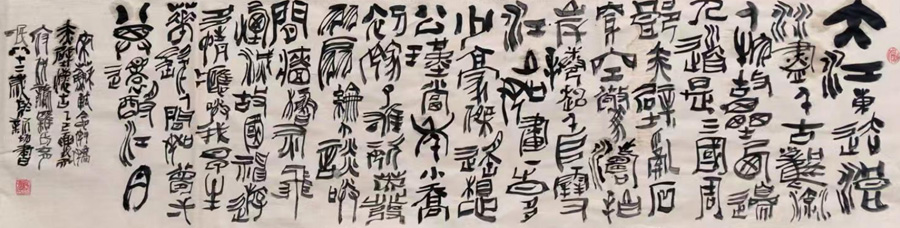 大江東去浪
淘盡千古風流
人物故壘西邊
人道是三國周
郎赤壁亂石
穿空驚濤拍
岸捲起千堆雪
江山如畫一時多
少豪傑遙想
公瑾當年小喬
初嫁了雄姿英發
羽扇綸巾談笑
間檣櫓灰飛
煙滅故國神遊
多情應笑我早生
華髮人間如夢一
尊還酹江月
宋蘇軾念奴嬌
赤壁懷古乙巳
八十三歲 書